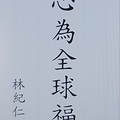 為全球福
林紀仁